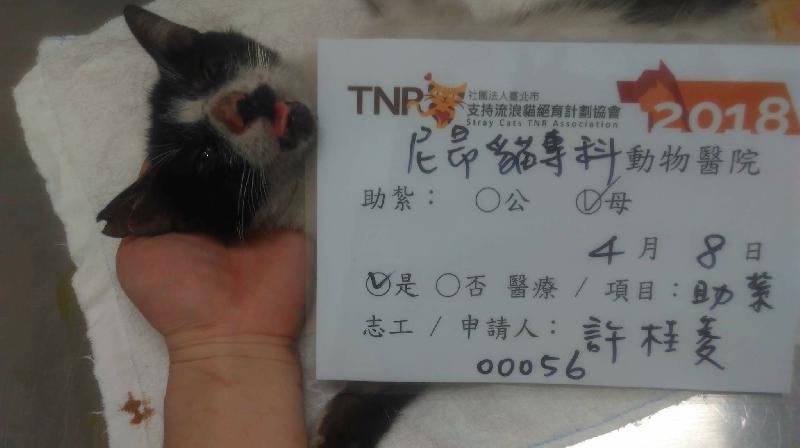 TNR 社團法人臺北市
支持流浪貓絕育計劃協會
Stray Cats TNR Association
2018
尼昂貓專科動物醫院
助紮： 公 母
4月 8日
是 否 醫療 / 項目：助紮
志工 / 申請人：許桂菱
00056